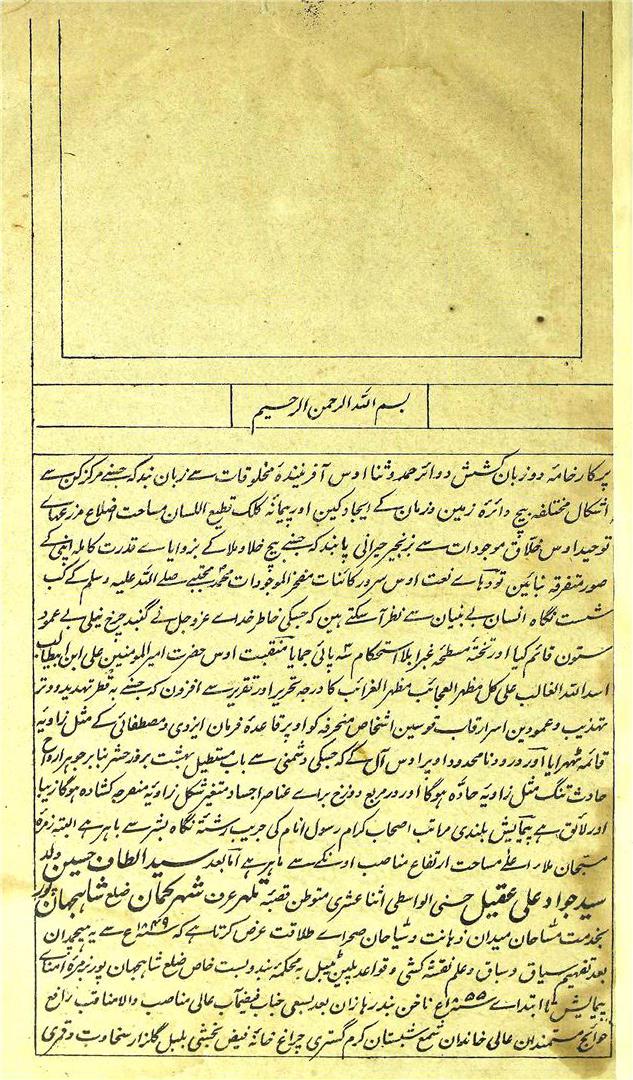 بسم اللہ الرحمن الرحیم
پرکار خامۂ دو زبان کشش دوائر حمد و ثنا اوس آفرینندۂ مخلوقات سے زبان بند کہ جسنے مرکز کن سے
اشکال مختلفہ بیچ دائرۂ زمین و زمان کے ایجاد کین اور پیمانۂ کلک قطیع اللسان مساحت اضلاع مزرعہاے
توحید اوس خلاق موجودات سے بزنجیر حیرانی پابند کہ جسنے بیچ خلا و ملا کے بزوایاے قدرت کاملہ اپنی کے
صور متفرقہ بنائین تودہاے نعت اوس سرور کائنات مفخر الموجودات محمد مجتبےٰ صلے اللہ علیہ وسلم کے کب
شست نگاہ انسان بے بنیان سے نظر آسکتے ہین کہ جسکی خاطر خداے عز و جل نے گنبد چرخ نیلی بے عمود
ستون قائم کیا اور تختۂ مسطحۂ غبرا بلا استحکام سہ پائی جمایا منقبت اوس حضرت امیر المومنین علی ابن ابیطالب
اسد اللہ الغالب علی کل مظہر العجائب مظہر الغرائب کا درجہ تحریر اور تقریر سے افزون کہ جسنے بہ قطر تہدید و وتر
تہذیب و عمودین اسرار قاب قوسین اشخاص منحرفہ کو اوپر قاعدۂ فرمان ایزدی و مصطفائی کے مثل زاویۂ
قائمہ ٹھہرایا اور درود نامحدود اوپر اوس آل کے کہ جسکی دشمنی سے باب مستطیل بہشت بروز حشر بنابر جوہر ارواح
حادث تنگ مثل زاویۂ حادہ ہوگا اور در مربع دوزخ براے عناصر اجساد متغیر شکل زاویۂ منفرجہ کشادہ ہوگا زیبا
اور لائق ہے پیمایش بلندی مراتب اصحاب کرام رسول انام کی جریب رشتۂ نگاہ بشر سے باہر ہے البتہ زمرۂ
مسبحان ملاء اعلے مساحت ارتفاع مناصب اونکے سے ماہر ہے اما بعد سید الطاف حسین ولد
سید جواد علی عقیل حسنی الواسطی اثنا عشری متوطن قصبۂ تلہر عرف شہر کمان ضلع شاہجہانپور
بخدمت مساحان میدان ذہانت و سیاحان صحراے طلاقت عرض کرتا ہے کہ ۱۸۴۹ع سے یہ ہیچمدان
بعد تفہیم سیاق و سباق و علم نقشہ کشی و قواعد پلین ٹیبل بہ محکمۂ بندوبست خاص ضلع شاہجہان پور زمرۂ امناے
پیمایش کا ابتداے ۱۸۵۵ع ناخن بند رہا زان بعد بسعی جناب فیضمآب عالی مناصب والا مناقب رافع
حوائج مستمندان عالی خاندان شمع شبستان کرم گستری چراغ خانۂ فیض بخشی بلبل گلزار سخاوت و قمری